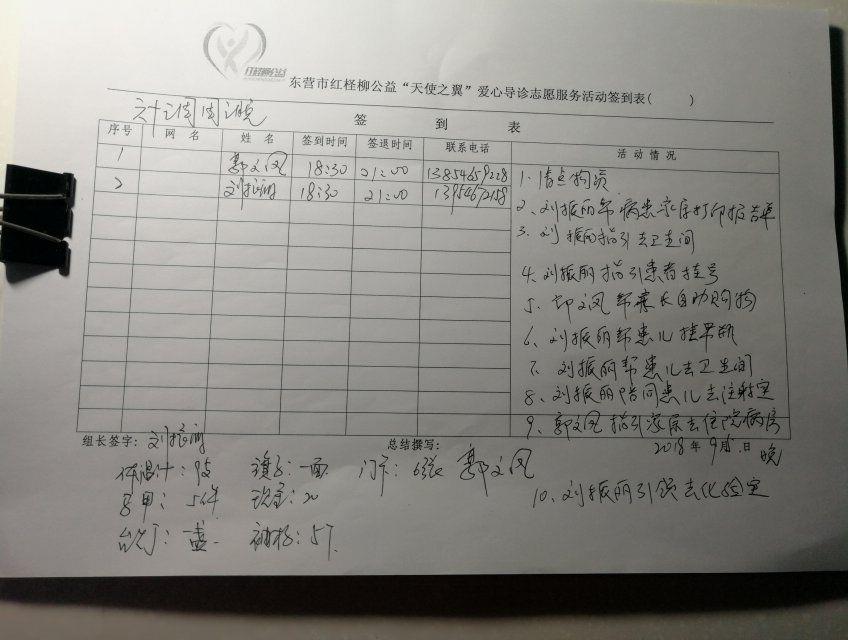 红柽柳公益
东营市红柽柳公益“天使之翼”爱心导诊志愿服务活动签到表( )
签 到 表
序号 网 名 姓 名 签到时间 签退时间 联系电话 活 动 情 况
1 郭文凤 18:30 21:00 13854659228
2 刘振丽 18:30 21:00 13954672158
1、清点物资
2、刘振丽帮病患家属打印报告单
3、刘振丽指引去卫生间
4、刘振丽指引患者挂号
5、郭文凤帮家长自助购物
6、刘振丽帮患儿挂吊瓶
7、刘振丽帮患儿去卫生间
8、刘振丽陪同患儿去注射室
9、郭文凤指引家属去住院病房
组长签字: 刘振丽 总结撰写: 郭文凤
2018年9月5日 晚
体温计:9支 旗子:一面 门卡:6张
马甲:5件 现金:20
台灯:一盏 袖标:5个
10、刘振丽引领去化验室